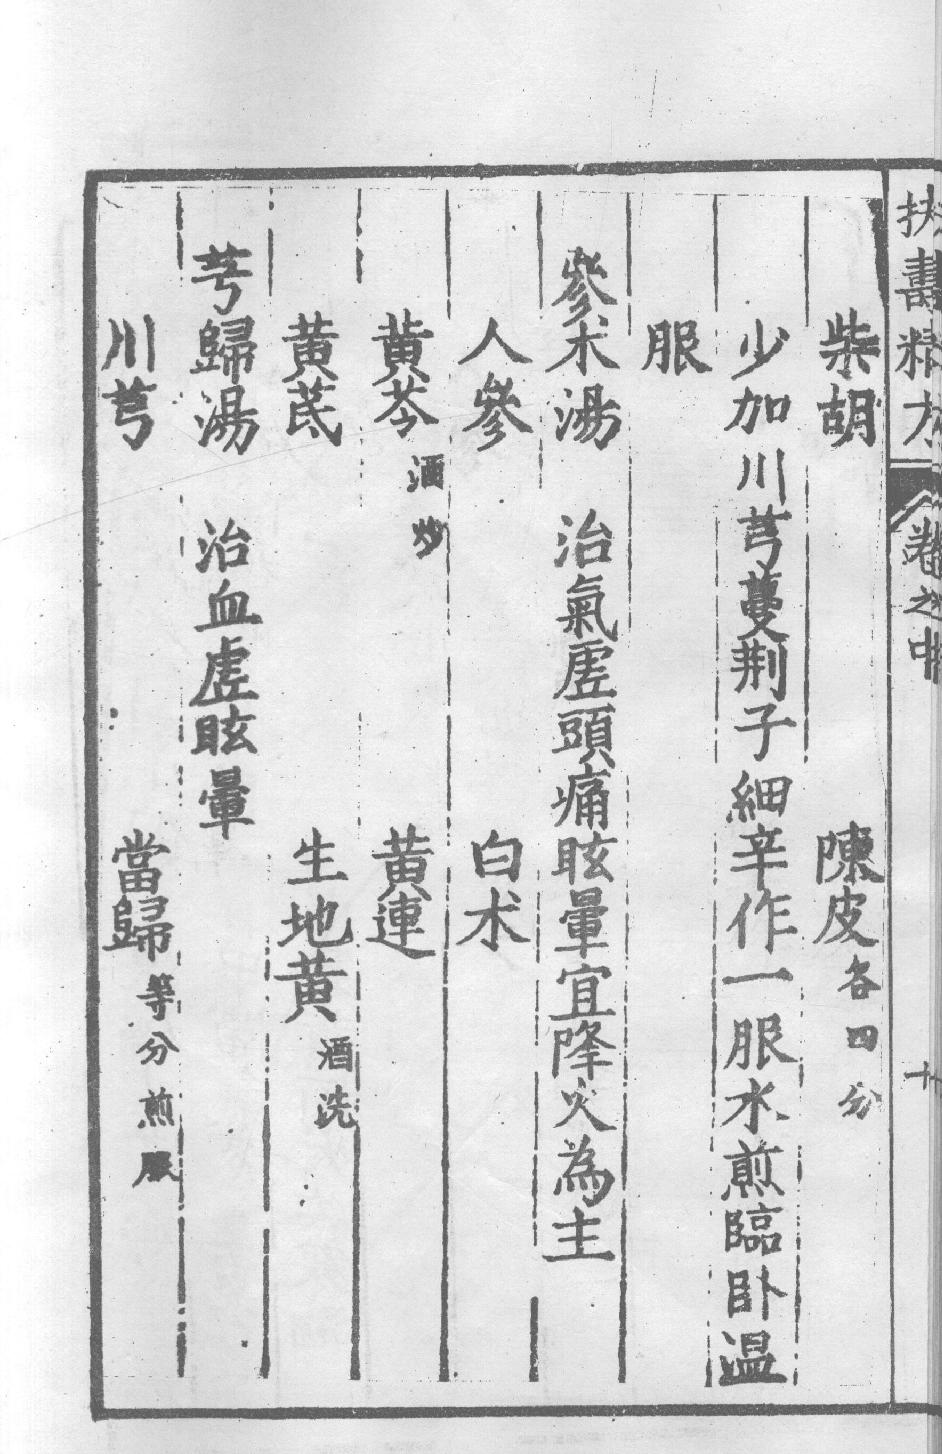 扶壽精方 卷之中 十
柴胡 陳皮各四分
少加川芎蔓荆子細辛作一服水煎臨卧温
服
參术湯 治氣虛頭痛眩暈宜降火為主
人參 白术
黄芩酒炒 黄連
黄芪 生地黄酒洗
芎歸湯 治血虛眩暈
川芎 當歸等分煎服